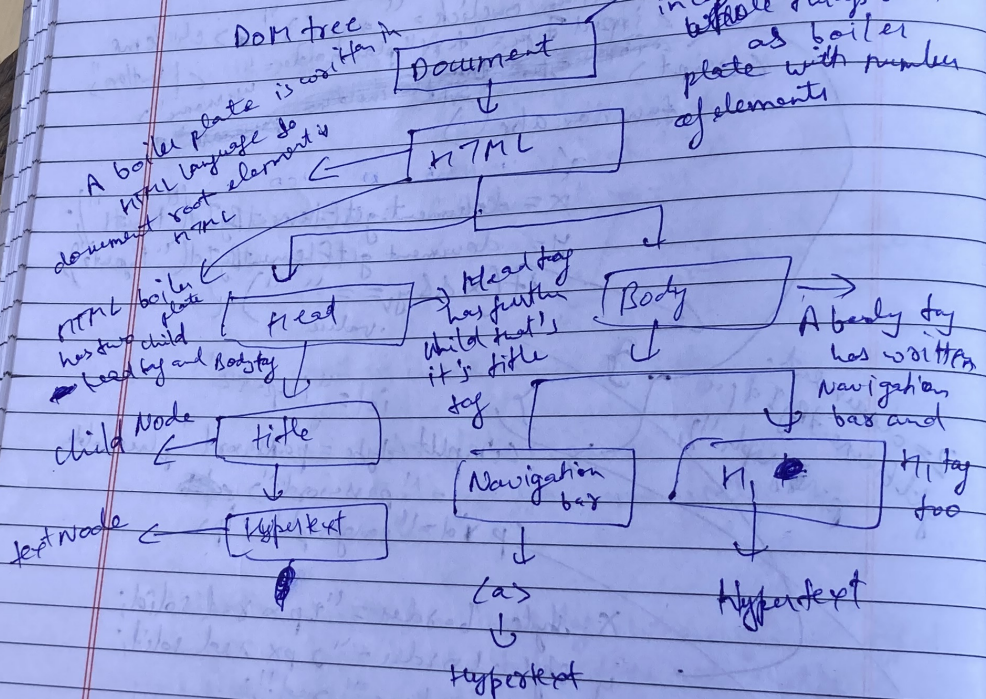 DOM tree
Document
as boiler
plate with number
of elements
A boiler plate is written in
HTML language so
document root element is
HTML
HTML
HTML boiler
plate
has two child
head tag and Body tag
Head
Head tag
has further
child that's
it's title
tag
Body
A body tag
has written
Navigation
bar and
H1 tag
too
child Node
title
Navigation
bar
H1
text Node
Hypertext
<a>
Hypertext
Hypertext